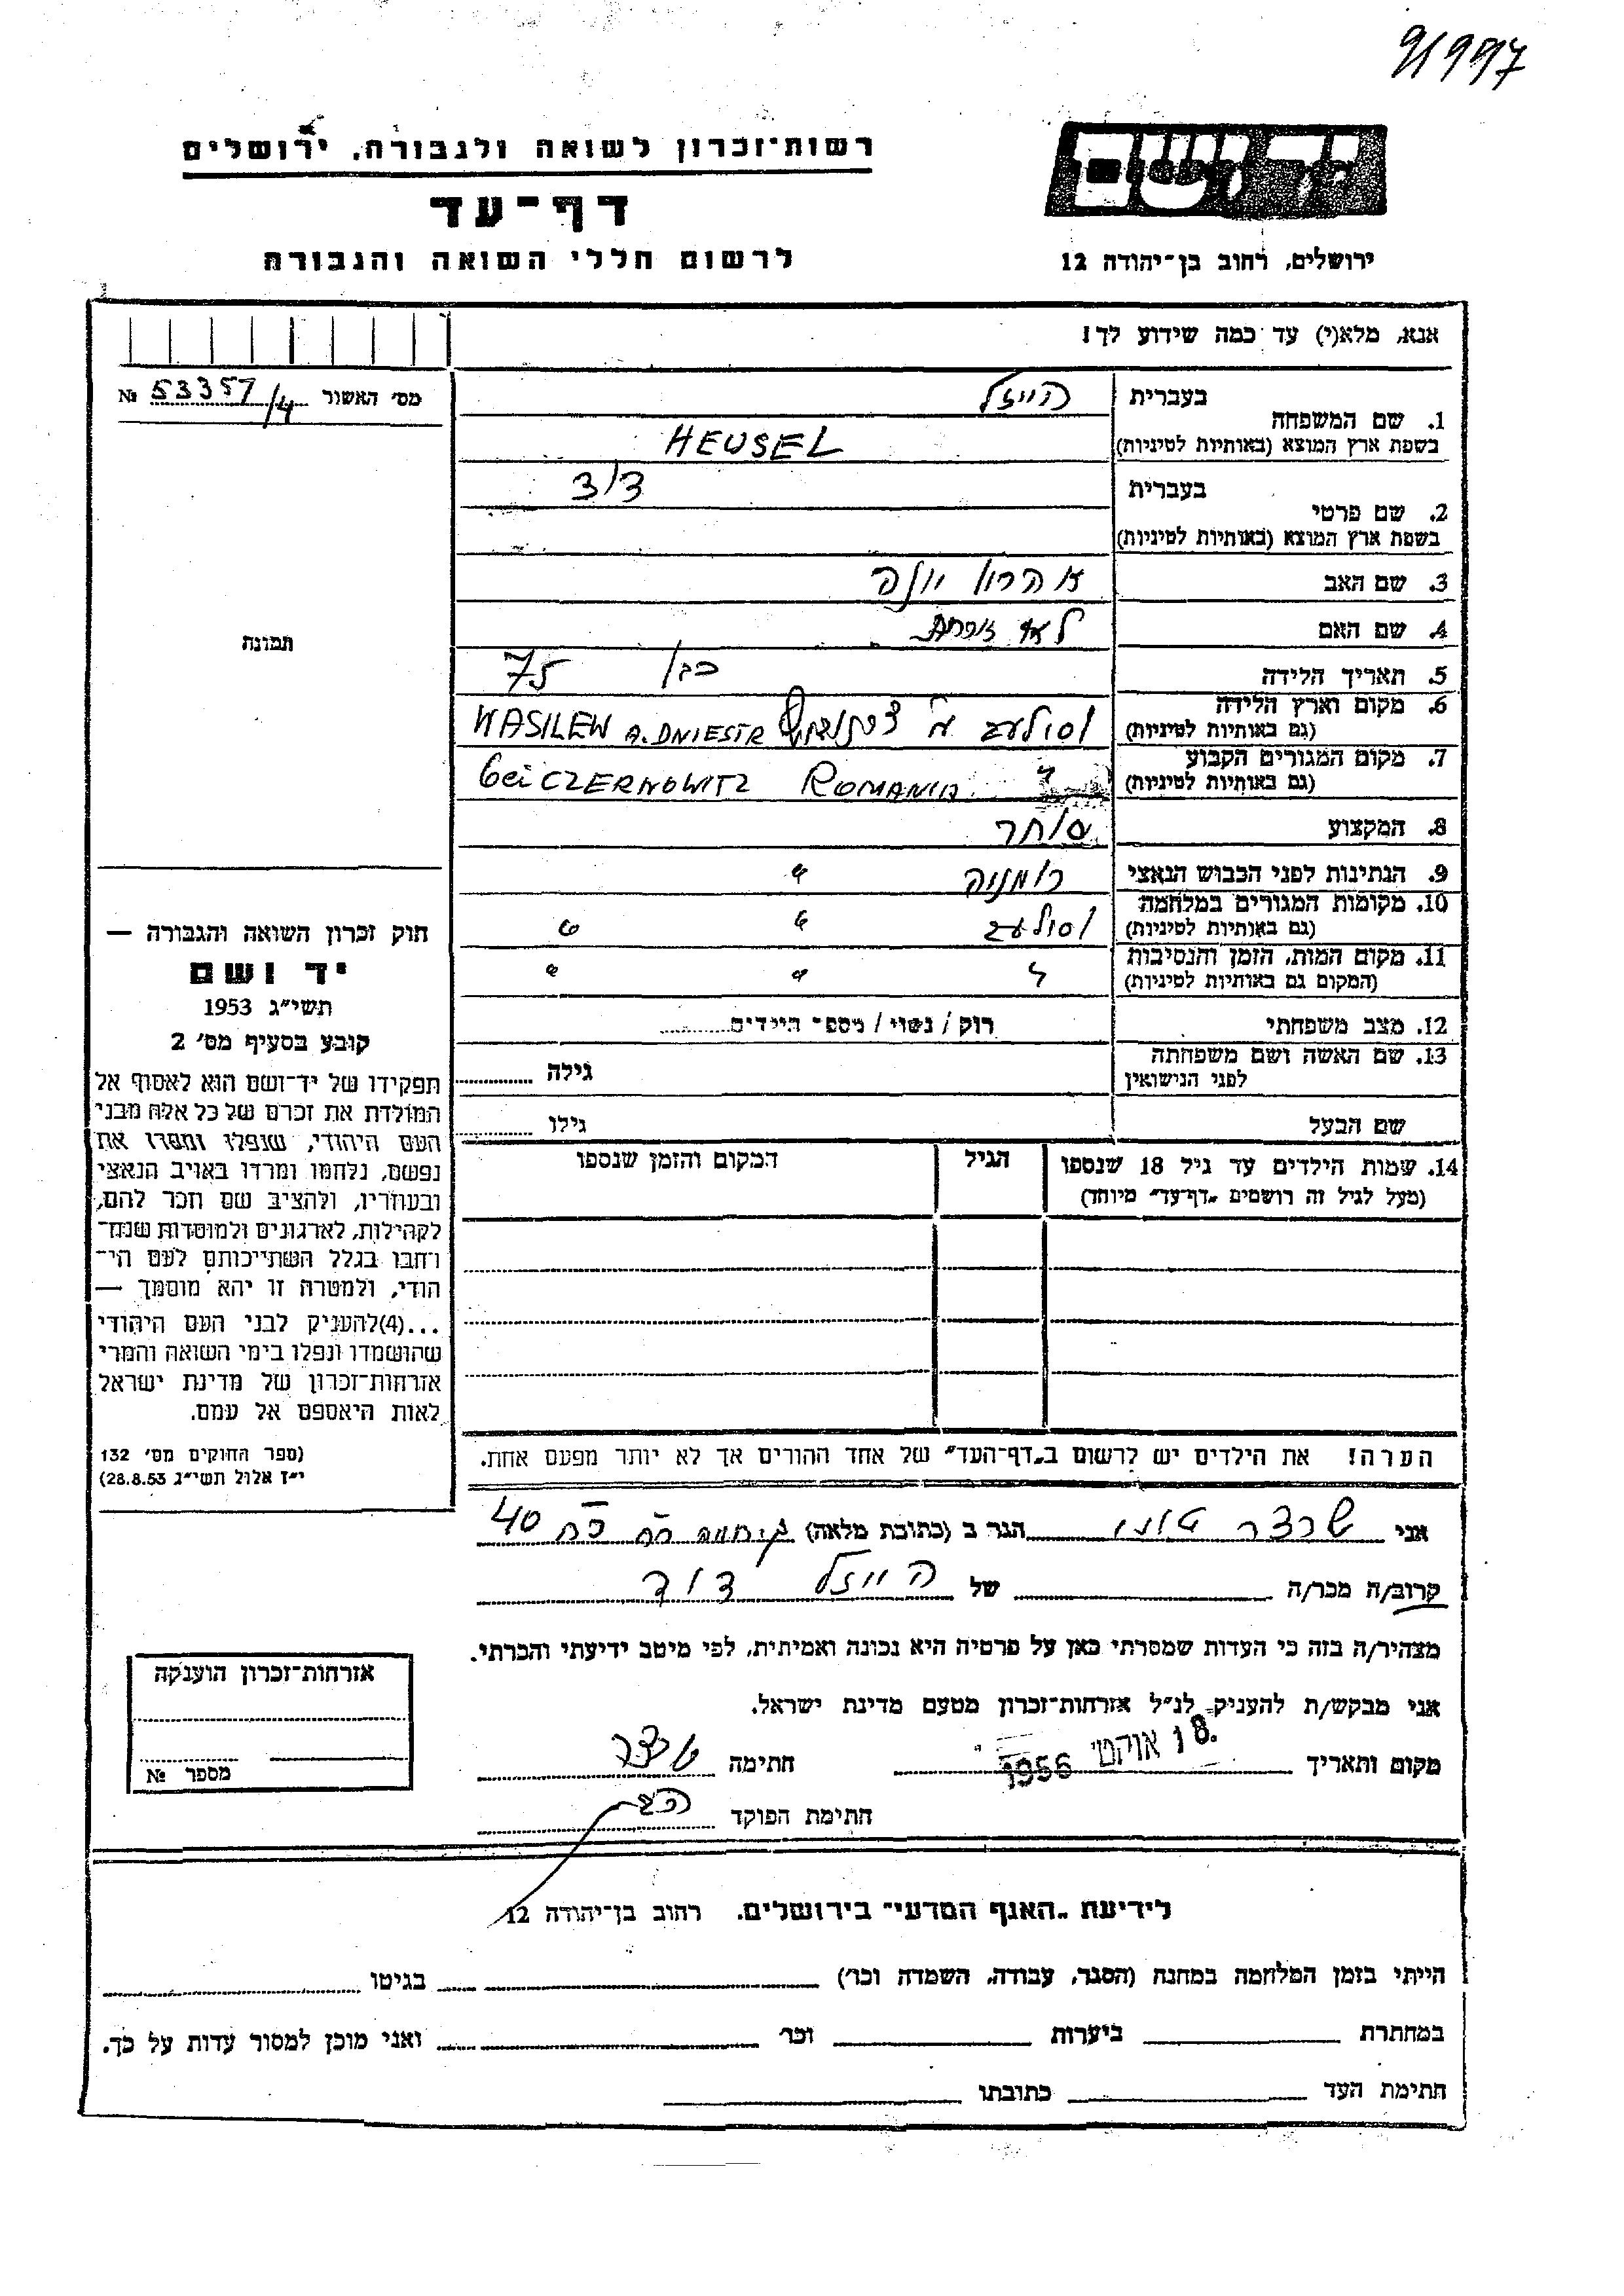 91997
רשות־זכרון לשואה ולגבורה, ירושלים
יד ושם
דף־עד
לרשום חללי השואה והגבורה
ירושלים, רחוב בן־יהודה 12
אנא, מלא(י) עד כמה שידוע לך!
מס׳ האשור 53357/4 №
1. שם המשפחה בעברית הייזל
בשפת ארץ המוצא (באותיות לטיניות) HEUSEL
2. שם פרטי בעברית דוד
בשפת ארץ המוצא (באותיות לטיניות)
3. שם האב אהרון יונה
4. שם האם לאה
5. תאריך הלידה כבן 75
תמונה
6. מקום וארץ הלידה
(גם באותיות לטיניות) WASILEW A. DNIESTR
7. מקום המגורים הקבוע
(גם באותיות לטיניות) bei CZERNOWITZ ROMANIA "
8. המקצוע סוחר
9. הנתינות לפני הכבוש הנאצי רומניה "
10. מקומות המגורים במלחמה
(גם באותיות לטיניות) וסולעב " "
11. מקום המות, הזמן והנסיבות
(המקום גם באותיות לטיניות) " " "
12. מצב משפחתי רוק / נשוי / מספר הילדים
13. שם האשה ושם משפחתה
לפני הנישואין גילה
שם הבעל גילו
14. שמות הילדים עד גיל 18 שנספו הגיל המקום והזמן שנספו
(מעל לגיל זה רושמים „דף־עד״ מיוחד)
הערה! את הילדים יש לרשום ב„דף־העד״ של אחד ההורים אך לא יותר מפעם אחת.
חוק זכרון השואה והגבורה —
יד ושם
תשי״ג 1953
קובע בסעיף מס׳ 2
תפקידו של יד־ושם הוא לאסוף אל
המולדת את זכרם של כל אלה מבני
העם היהודי, שנפלו ומסרו את
נפשם, נלחמו ומרדו באויב הנאצי
ובעוזריו, ולהציב שם וזכר להם,
לקהילות, לארגונים ולמוסדות שנח־
רבו בגלל השתייכותם לעם הי־
הודי, ולמטרה זו יהא מוסמך —
...(4)להעניק לבני העם היהודי
שהושמדו ונפלו בימי השואה והמרי
אזרחות־זכרון של מדינת ישראל
לאות היאספם אל עמם.
(ספר החוקים מס׳ 132
י״ז אלול תשי״ג 28.8.53)
אני שרצר טוני הגר ב (כתובת מלאה) 40
קרוב/ה מכר/ה של הייזל דוד
מצהיר/ה בזה כי העדות שמסרתי כאן על פרטיה היא נכונה ואמיתית, לפי מיטב ידיעתי והכרתי.
אני מבקש/ת להעניק לנ״ל אזרחות־זכרון מטעם מדינת ישראל.
מקום ותאריך 18 אוקט׳ 1956 חתימה
חתימת הפוקד
אזרחות־זכרון הוענקה
מספר №
לידיעת „האגף המדעי״ בירושלים. רחוב בן־יהודה 12
הייתי בזמן המלחמה במחנה (הסגר, עבודה, השמדה וכר׳) בגיטו
במחתרת ביערות וכר׳ ואני מוכן למסור עדות על כך.
חתימת העד כתובתו